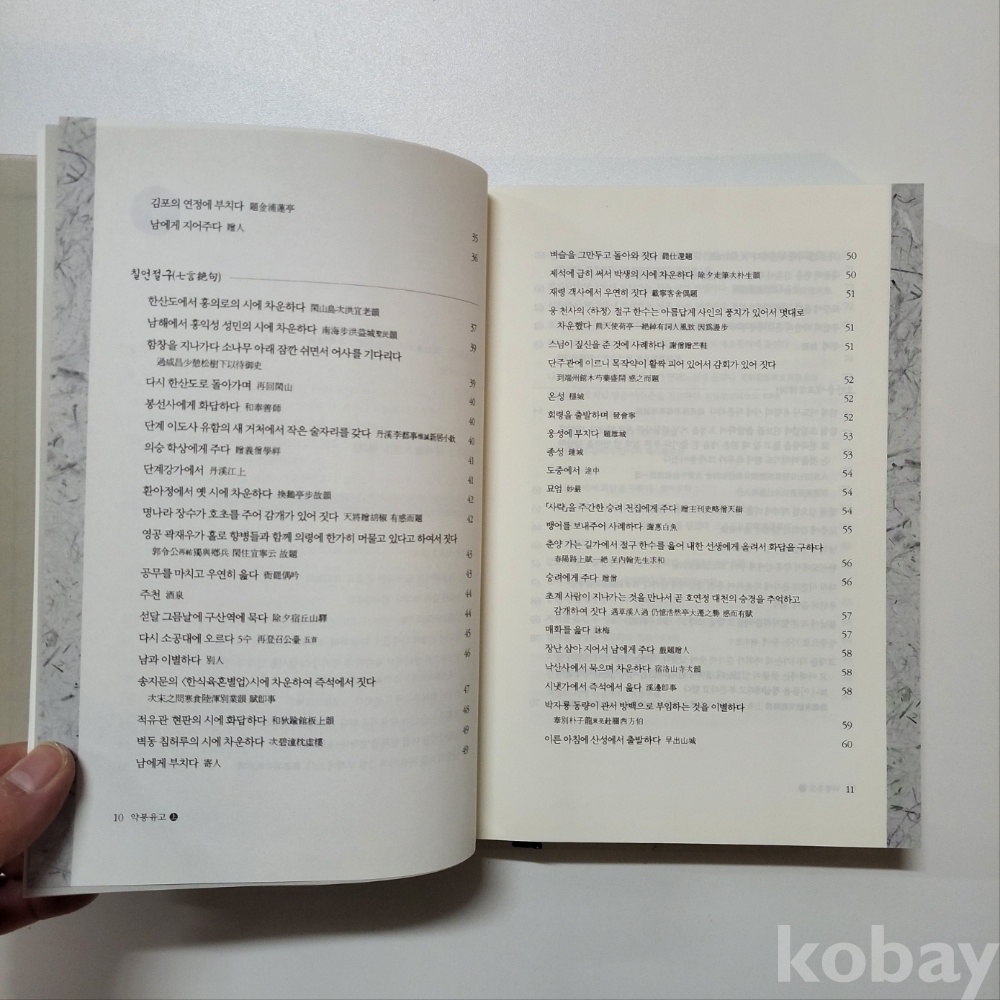 김포의 연정에 부치다 題金浦蓮亭 35
남에게 지어주다 贈人 36
칠언절구(七言絶句)
한산도에서 홍의로의 시에 차운하다 閑山島次洪宜老韻 37
남해에서 홍익성 성민의 시에 차운하다 南海步洪益城聖民韻
함창을 지나다가 소나무 아래 잠깐 쉬면서 어사를 기다리다
過咸昌少憩松樹下以待御史 39
다시 한산도로 돌아가며 再回閑山 40
봉선사에게 화답하다 和奉善師 40
단계 이도사 유함의 새 거처에서 작은 술자리를 갖다 丹溪李都事惟諴新居小飮 40
의승 학상에게 주다 贈義僧學祥 41
단계강가에서 丹溪江上 41
환아정에서 옛 시에 차운하다 換鵝亭步故韻 42
명나라 장수가 호초를 주어 감개가 있어 짓다 天將贈胡椒 有感而題 42
영공 곽재우가 홀로 향병들과 함께 의령에 한가히 머물고 있다고 하여서 짓다
郭令公再祐獨與鄕兵 閑住宜寧云 故題 43
공무를 마치고 우연히 읊다 衙罷偶吟 43
주천 酒泉 44
섣달 그믐날에 구산역에 묵다 除夕宿丘山驛 44
다시 소공대에 오르다 5수 再登召公臺 五首 45
남과 이별하다 別人 46
송지문의 〈한식육혼별업〉시에 차운하여 즉석에서 짓다
次宋之問寒食陸渾別業韻 賦卽事 47
적유관 현판의 시에 화답하다 和狄踰館板上韻 48
벽동 침허루의 시에 차운하다 次碧潼枕虛樓 49
남에게 부치다 寄人 49
10 약봉유고 上
벼슬을 그만두고 돌아와 짓다 罷仕還題 50
제석에 급히 써서 박생의 시에 차운하다 除夕走筆次朴生韻 50
재령 객사에서 우연히 짓다 載寧客舍偶題 51
웅 천사의 〈하정〉 절구 한수는 아름답게 사인의 풍치가 있어서 멋대로
차운했다 熊天使荷亭一絶綽有詞人風致 因爲漫步 51
스님이 짚신을 준 것에 사례하다 謝僧贈芒鞋 51
단주관에 이르니 목작약이 활짝 피어 있어서 감회가 있어 짓다
到端州館木芍藥盛開 感之而題 52
온성 穩城 52
회령을 출발하며 發會寧 52
웅성에 부치다 題雄城 53
종성 鍾城 53
도중에서 途中 54
묘엄 妙嚴 54
「사략」을 주간한 승려 천집에게 주다 贈主刊史略僧天 54
뱅어를 보내주어 사례하다 謝惠白魚 55
춘양 가는 길가에서 절구 한수를 읊어 내한 선생에게 올려서 화답을 구하다
春陽路上賦一絶 呈內翰先生求和 56
승려에게 주다 贈僧 56
초계 사람이 지나가는 것을 만나서 곧 호연정 대천의 승경을 추억하고
감개하여 짓다 遇草溪人過 仍憶浩然亭大遷之勝 感而有賦 57
매화를 읊다 詠梅 57
장난 삼아 지어서 남에게 주다 戲題贈人 58
낙산사에서 묵으며 차운하다 宿洛山寺次韻 58
시냇가에서 즉석에서 읊다 溪邊卽事 58
박자룡 동량이 관서 방백으로 부임하는 것을 이별하다
奉別朴子龍東亮赴關西方伯 59
이른 아침에 산성에서 출발하다 早出山城 60
11
kobay